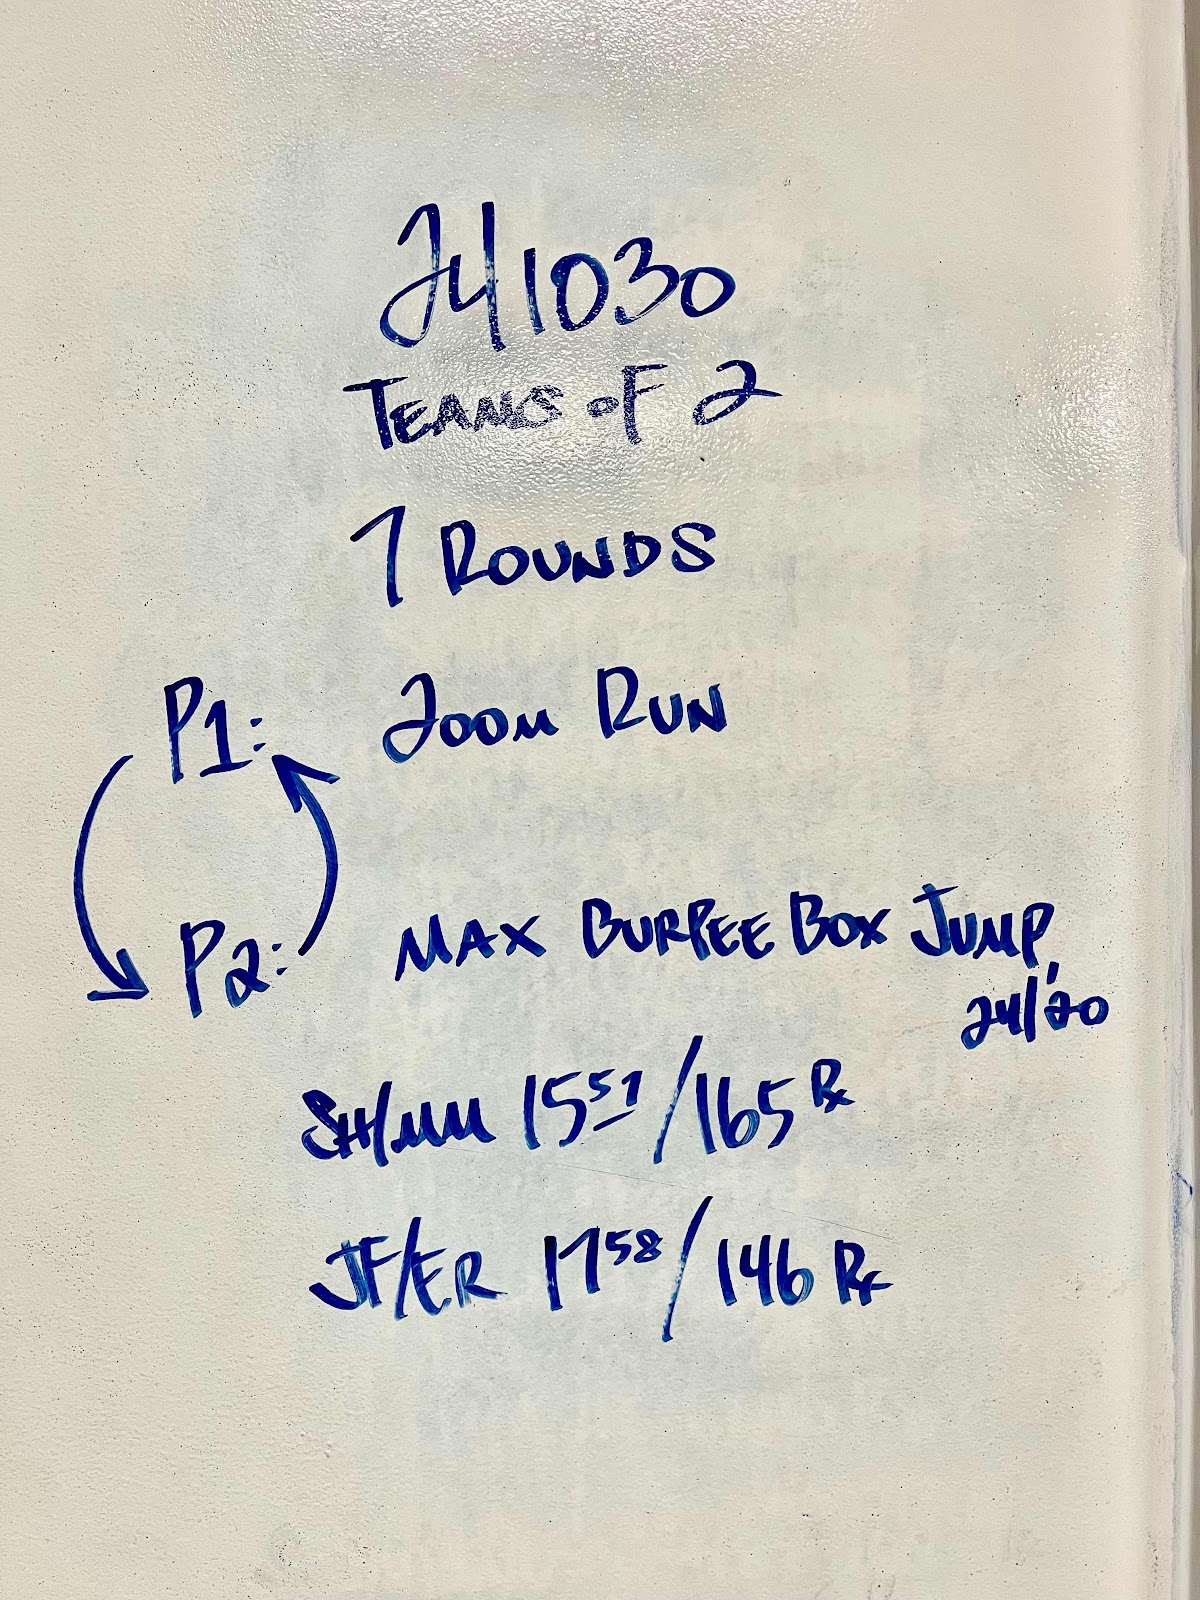 241030
TEAMS OF 2
7 ROUNDS
P1: 200M RUN
P2: MAX BURPEE BOX JUMP,
24/20
SH/MM 15 57/165 Rx
JF/ER 17 58/146 Rx